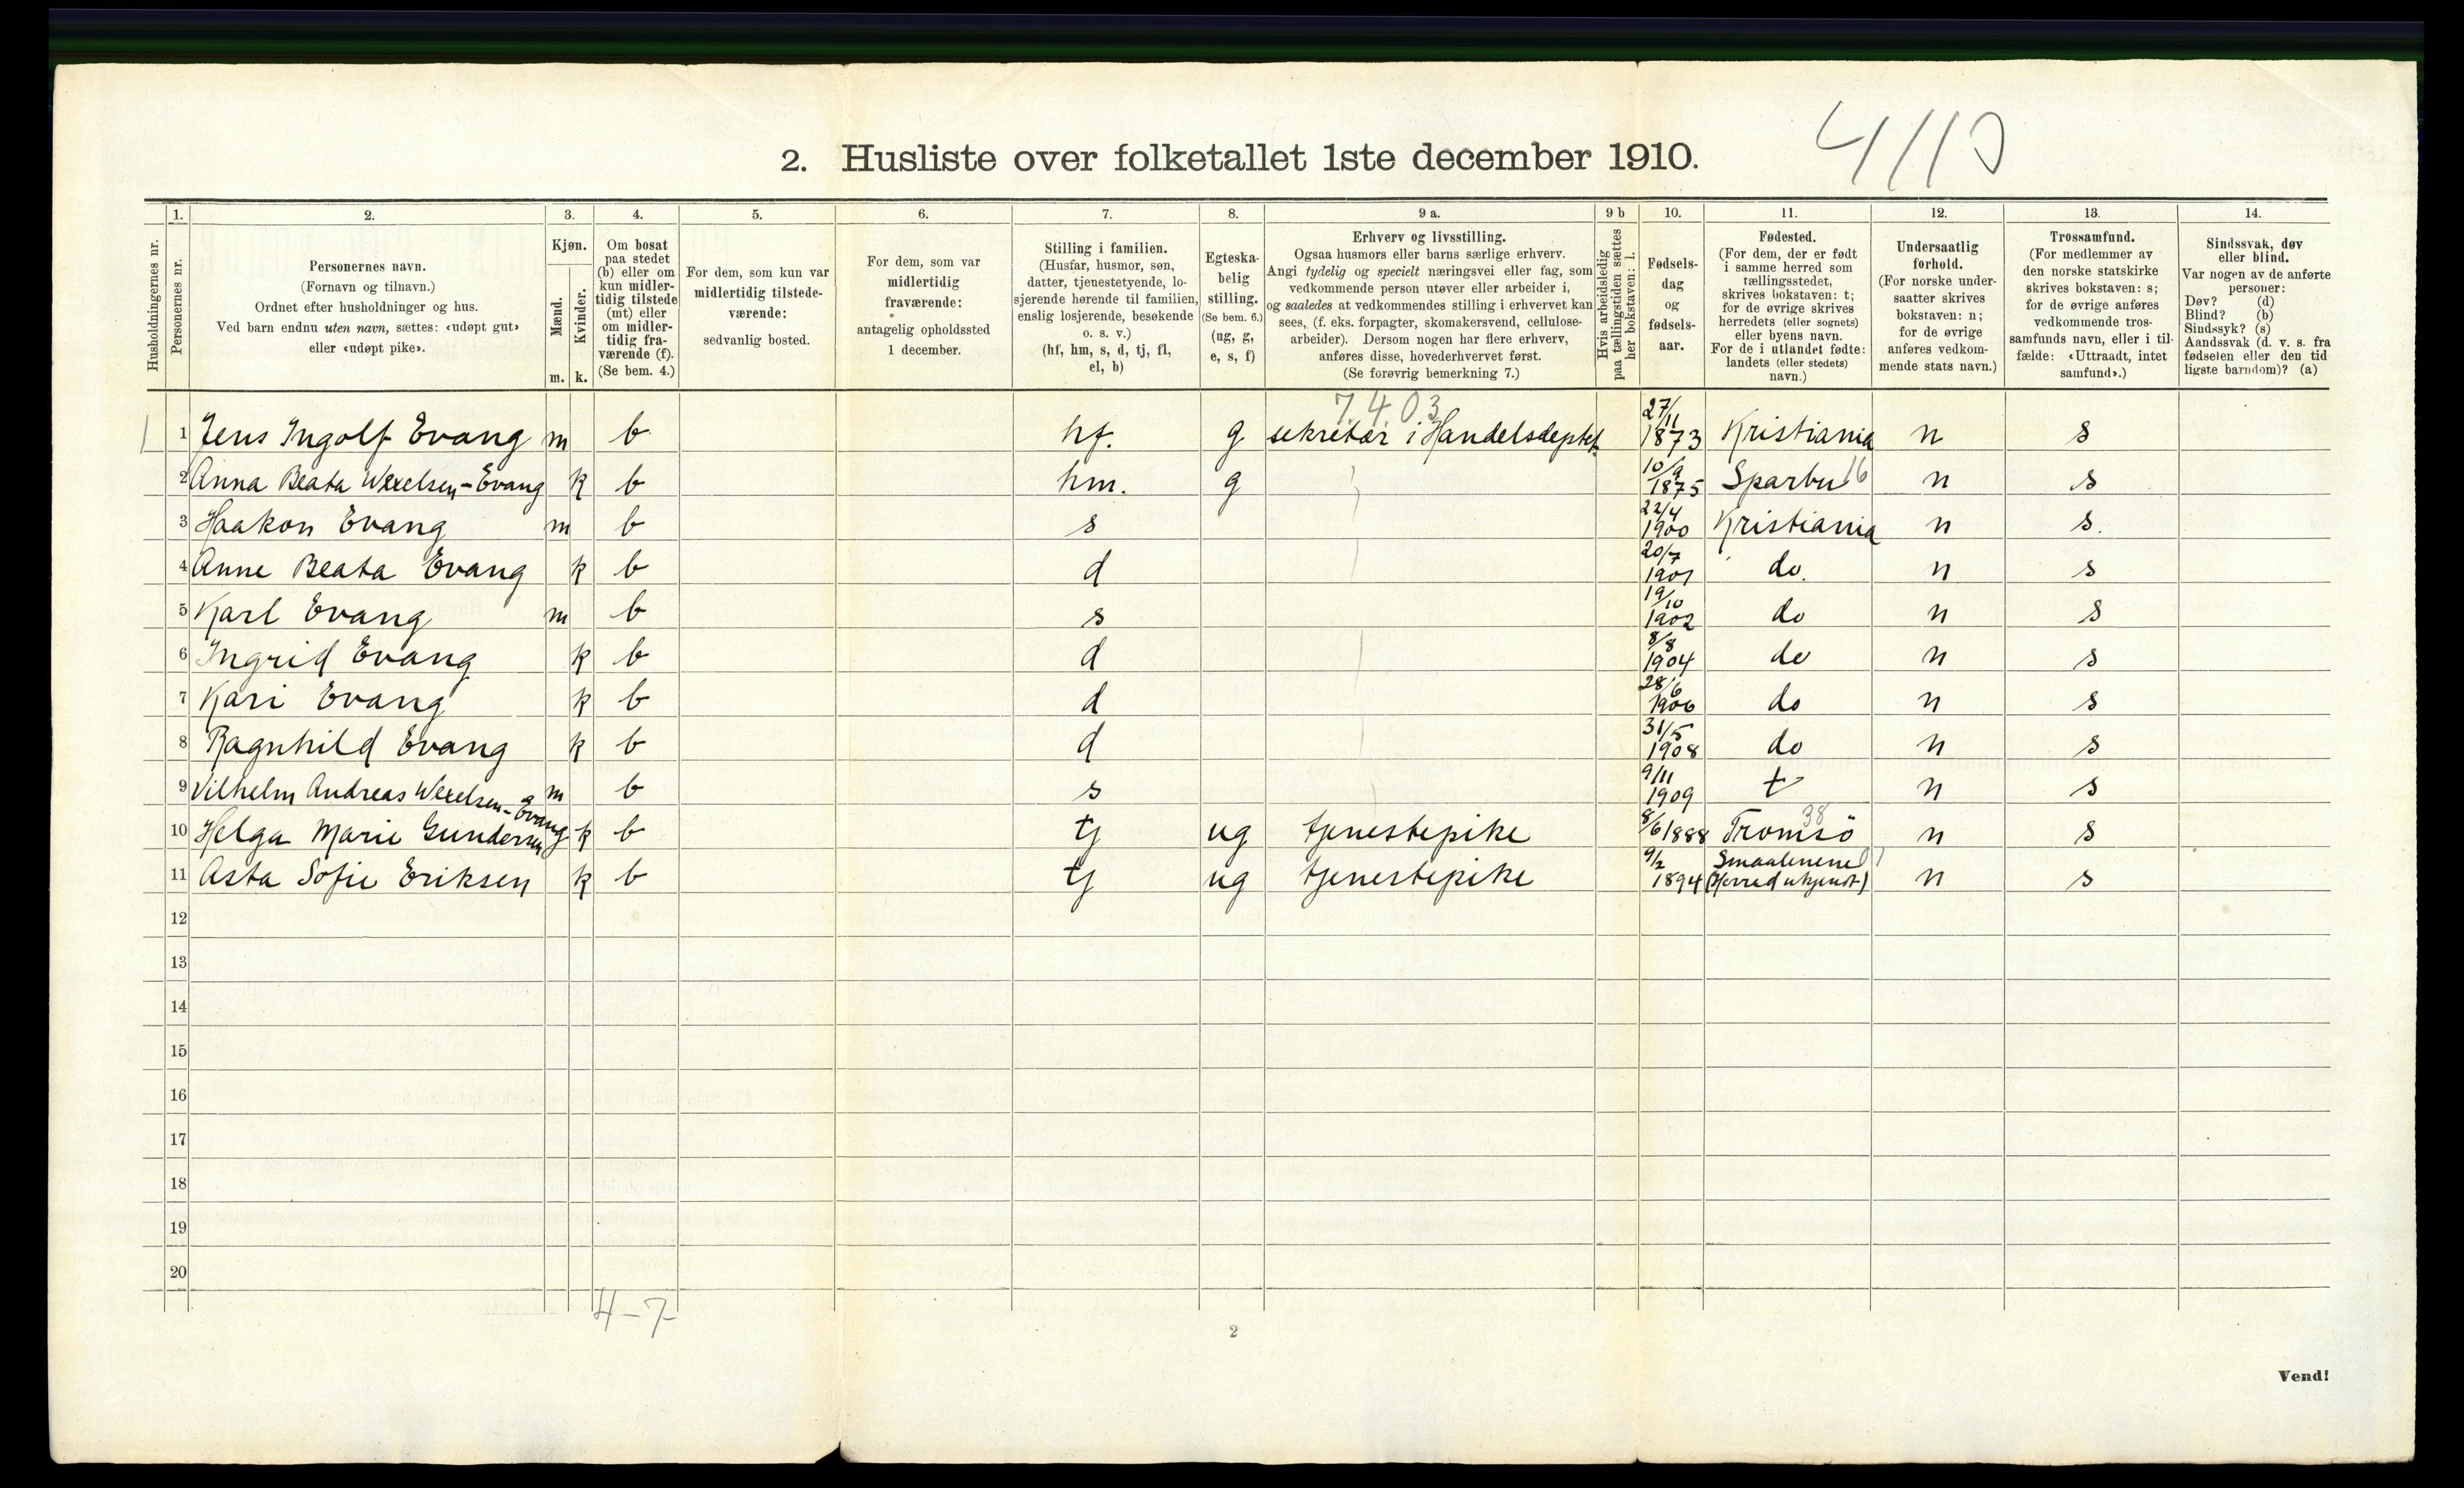 4/10
2. Husliste over folketallet 1ste december 1910.
Husholdningernes nr.
1.
Personernes nr.
2.
Personernes navn.
(Fornavn og tilnavn.)
Ordnet efter husholdninger og hus.
Ved barn endnu uten navn, sættes: «udøpt gut»
eller «udøpt pike».
3.
Kjøn.
Mænd.
m.
Kvinder.
k.
4.
Om bosat
paa stedet
(b) eller om
kun midler-
tidig tilstede
(mt) eller
om midler-
tidig fra-
værende (f).
(Se bem. 4.)
5.
For dem, som kun var
midlertidig tilstede-
værende:
sedvanlig bosted.
6.
For dem, som var
midlertidig
fraværende:
antagelig opholdssted
1 december.
7.
Stilling i familien.
(Husfar, husmor, søn,
datter, tjenestetyende, lo-
sjerende hørende til familien,
enslig losjerende, besøkende
o. s. v.)
(hf, hm, s, d, tj, fl,
el, b)
8.
Egteska-
belig
stilling.
(Se bem. 6.)
(ug, g,
e, s, f)
9 a.
Erhverv og livsstilling.
Ogsaa husmors eller barns særlige erhverv.
Angi tydelig og specielt næringsvei eller fag, som
vedkommende person utøver eller arbeider i,
og saaledes at vedkommendes stilling i erhvervet kan
sees, (f. eks. forpagter, skomakersvend, cellulose-
arbeider). Dersom nogen har flere erhverv,
anføres disse, hovederhvervet først.
(Se forøvrig bemerkning 7.)
9 b
Hvis arbeidsledig
paa tællingstiden sættes
her bokstaven: l.
10.
Fødsels-
dag
og
fødsels-
aar.
11.
Fødested.
(For dem, der er født
i samme herred som
tællingsstedet,
skrives bokstaven: t;
for de øvrige skrives
herredets (eller sognets)
eller byens navn.
For de i utlandet fødte:
landets (eller stedets)
navn.)
12.
Undersaatlig
forhold.
(For norske under-
saatter skrives
bokstaven: n;
for de øvrige
anføres vedkom-
mende stats navn.)
13.
Trossamfund.
(For medlemmer av
den norske statskirke
skrives bokstaven: s;
for de øvrige anføres
vedkommende tros-
samfunds navn, eller i til-
fælde: «Uttraadt, intet
samfund».)
14.
Sindssvak, døv
eller blind.
Var nogen av de anførte
personer:
Døv? (d)
Blind? (b)
Sindssyk? (s)
Aandssvak (d. v. s. fra
fødselen eller den tid-
ligste barndom)? (a)
7.403
1 1 Jens Ingolf Evang m b hf. g sekretær i Handelsdeptet. 27/11 1873 Kristiania n s
2 Anna Beata Wexelsen-Evang k b hm. g 10/9 1875 Sparbu 16 n s
3 Haakon Evang m b s 22/4 1900 Kristiania n s.
4 Anne Beata Evang k b d 20/7 1901 do. n s
5 Karl Evang m b s 19/10 1902 do n s
6 Ingrid Evang k b d 8/8 1904 do n s
7 Kari Evang k b d 28/6 1906 do n s
8 Ragnhild Evang k b d 31/5 1908 do n s
9 Vilhelm Andreas Wexelsen-Evang m b s 9/11 1909 t n s
10 Helga Marie Gundersen k b tj ug tjenestepike 8/6 1888 Tromsö 38 n s
11 Asta Sofie Eriksen k b tj ug tjenestepike 9/2 1894 Smaalenene 01 (Herred ukjendt) n s
12
13
14
15
16
17
18
19
20
4-7
2
Vend!